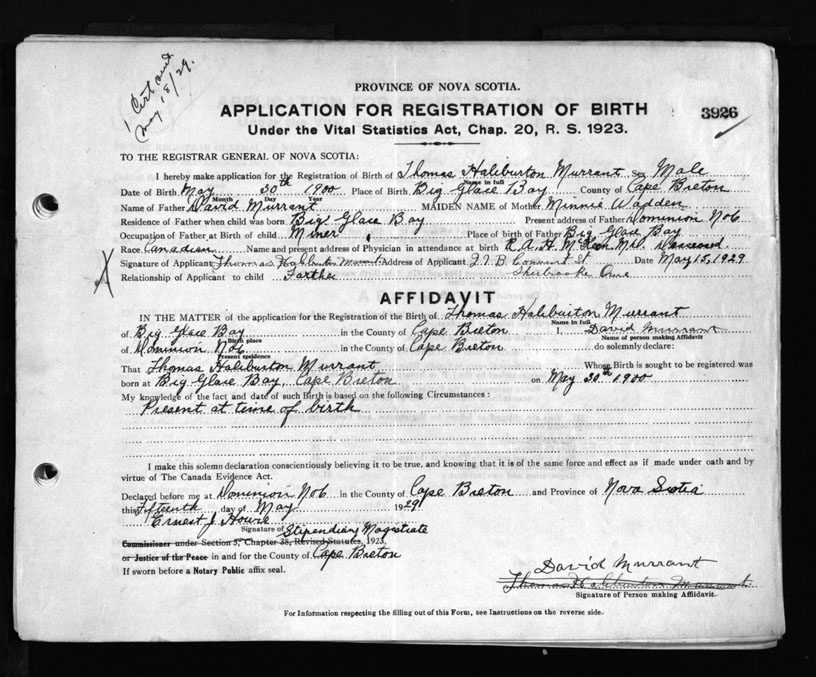 1 Cert and
May 15/29.
PROVINCE OF NOVA SCOTIA.
APPLICATION FOR REGISTRATION OF BIRTH
3926
Under the Vital Statistics Act, Chap. 20, R. S. 1923.
TO THE REGISTRAR GENERAL OF NOVA SCOTIA:
I hereby make application for the Registration of Birth of Thomas Haliburton Murrant Sex Male
Name in full
Date of Birth May 30th 1900 Place of Birth Big Glace Bay County of Cape Breton
Month Day Year
Name of Father David Murrant MAIDEN NAME of Mother Minnie Wadden
Residence of Father when child was born Big Glace Bay Present address of Father Dominion No 6
Occupation of Father at Birth of child Miner Place of birth of Father Big Glace Bay
Race Canadian Name and present address of Physician in attendance at birth R. A. H. McKeen M.D. Deceased
Signature of Applicant Thomas Haliburton Murrant Address of Applicant Convent St. Date May 15, 1929
Sherbrooke Que
Relationship of Applicant to child Farther
AFFIDAVIT
IN THE MATTER of the application for the Registration of the Birth of Thomas Haliburton Murrant
Name in full
of Big Glace Bay in the County of Cape Breton I, David Murrant
Birth place Name of person making Affidavit
of Dominion No 6 in the County of Cape Breton do solemnly declare:
Present residence
That Thomas Haliburton Murrant Whose Birth is sought to be registered was
born at Big Glace Bay, Cape Breton on May 30th 1900
My knowledge of the fact and date of such Birth is based on the following Circumstances:
Present at time of birth
I make this solemn declaration conscientiously believing it to be true, and knowing that it is of the same force and effect as if made under oath and by
virtue of The Canada Evidence Act.
Declared before me at Dominion No 6 in the County of Cape Breton and Province of Nova Scotia
this Fifteenth day of May 1929
Ernest J. Howie
Signature of Stipendiary Magistrate
Commissioner under Section 5, Chapter 38, Revised Statutes, 1923,
or Justice of the Peace in and for the County of Cape Breton
If sworn before a Notary Public affix seal.
David Murrant
Thomas Haliburton Murrant
Signature of Person making Affidavit.
For Information respecting the filling out of this Form, see Instructions on the reverse side.